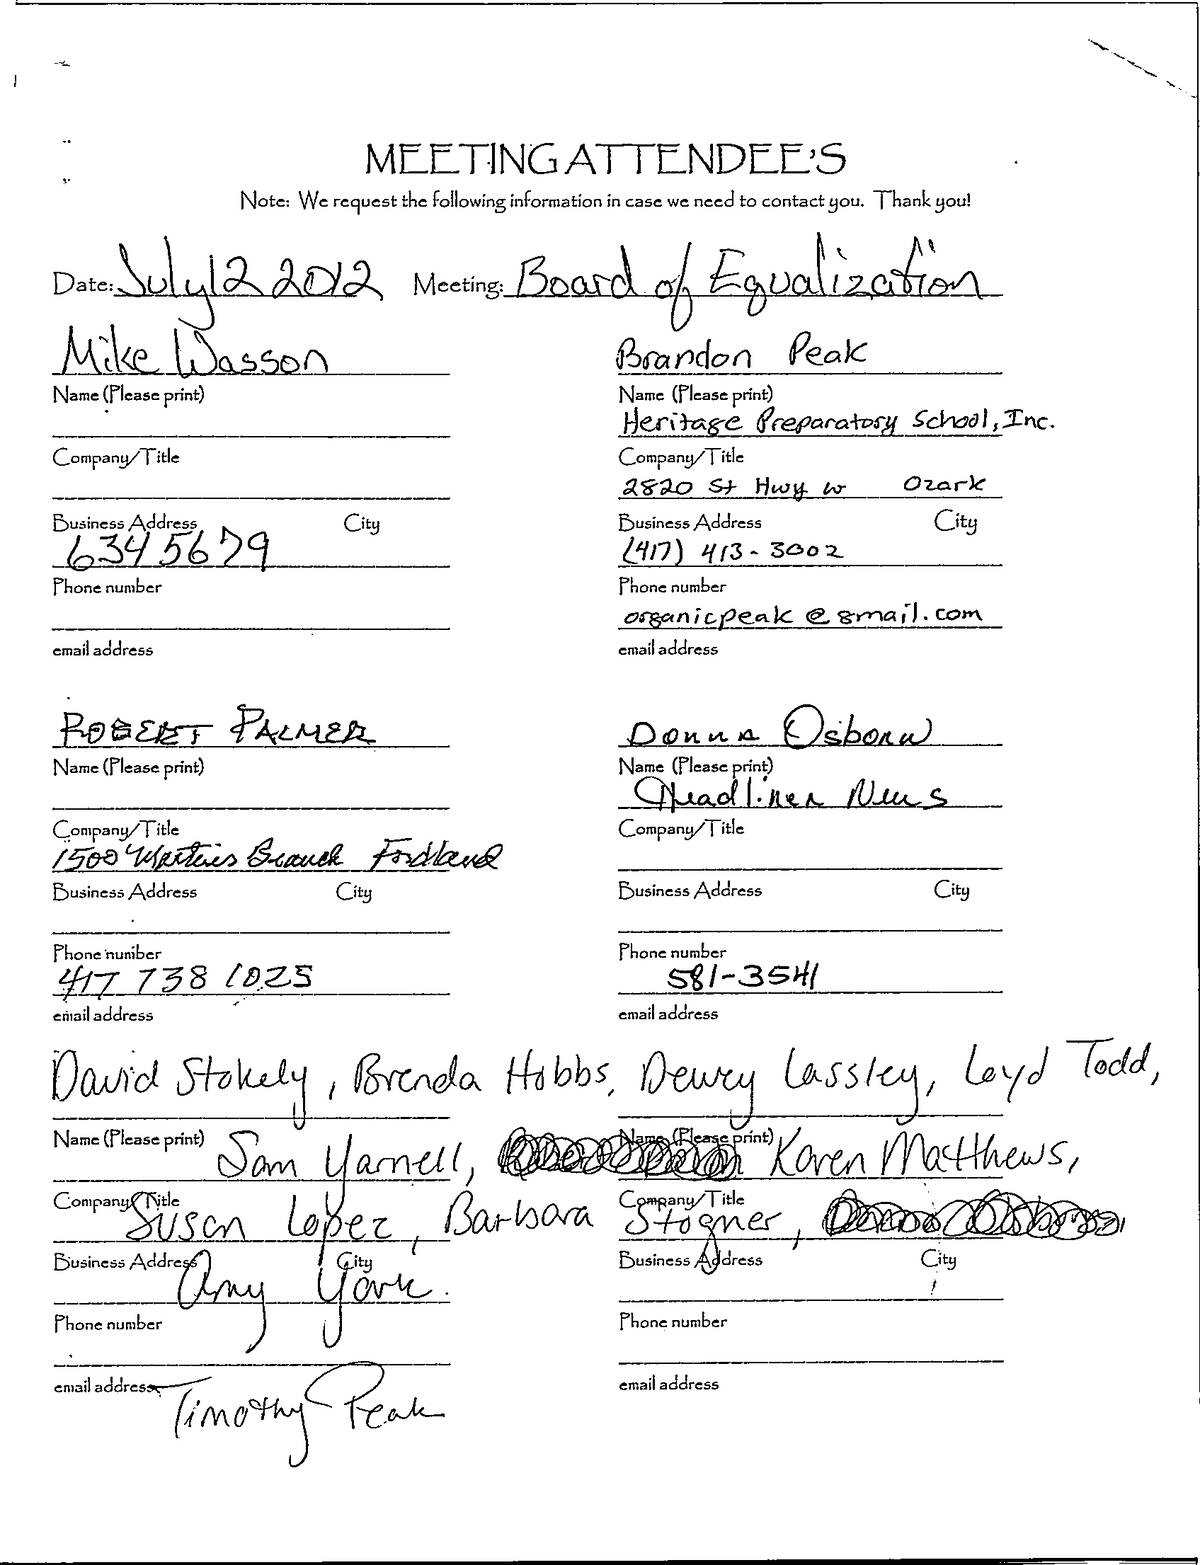 MEETING ATTENDEE'S
Note: We request the following information in case we need to contact you. Thank you!
Date: July 12 2012 Meeting: Board of Equalization
Mike Wasson
Name (Please print)
Company/Title
Business Address City
634 5679
Phone number
email address
Brandon Peak
Name (Please print)
Heritage Preparatory School, Inc.
Company/Title
2820 St Hwy W Ozark
Business Address City
(417) 413-3002
Phone number
organicpeak@gmail.com
email address
ROBERT PALMER
Name (Please print)
Company/Title
1500 Branch Fordland
Business Address City
Phone number
417 738 1025
email address
Donna Osborn
Name (Please print)
Headliner News
Company/Title
Business Address City
Phone number
581-3541
email address
David Stokely, Brenda Hobbs, Dewey Lassley, Loyd Todd,
Name (Please print) Name (Please print)
Sam Yarnell, Karen Matthews,
Company/Title Company/Title
Susan Lopez, Barbara Stogner,
Business Address City Business Address City
Amy York.
Phone number Phone number
email address email address
Timothy Peak